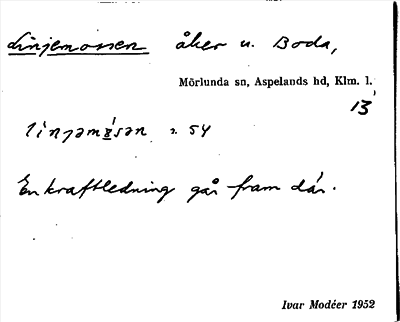 Linjemossen åker u. Boda,
Mörlunda sn, Aspelands hd, Klm. l.
13
54
En kraftledning går fram där.
Ivar Modéer 1952